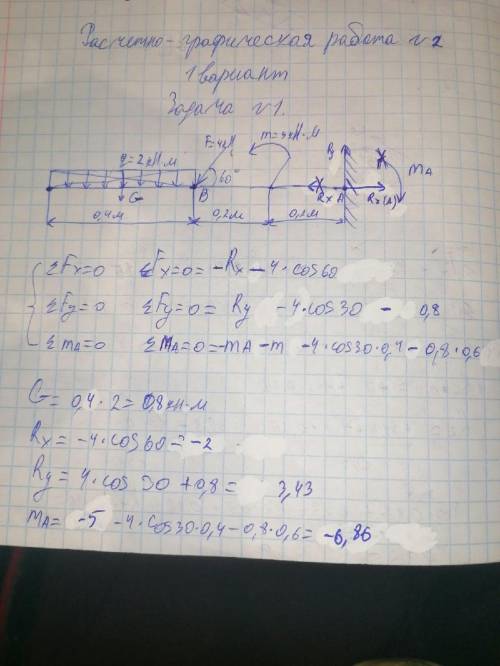 Расчетно-графическая работа №2
1 вариант
Задача №1.
q=2кН·м F=4кН m=5кН·м Ry
60° MA
B G Rx A Rx(A)
0,4м 0,2м 0,2м
ΣFx=0 ΣFx=0=-Rx-4·cos60
ΣFy=0 ΣFy=0= Ry -4·cos30 - 0,8
ΣmA=0 ΣMA=0=-MA-m -4·cos30·0,4-0,8·0,6
G=0,4·2=0,8кН·м
Rx=-4·cos60=-2
Ry=4·cos30+0,8= 3,43
MA= -5 -4·cos30·0,4-0,8·0,6= -6,86